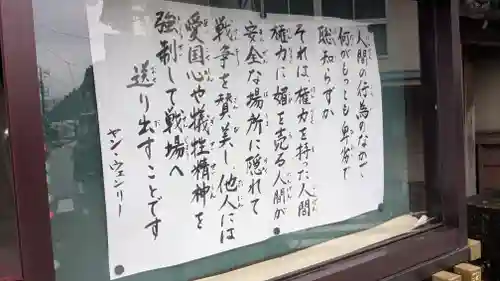 人間の行為のなかで
何がもっとも卑劣で
恥知らずか
それは、権力を持った人間
権力に媚を売る人間が
安全な場所に隠れて
戦争を賛美し、他人には
愛国心や犠牲精神を
強制して戦場へ
送り出すことです
ヤン・ウェンリー